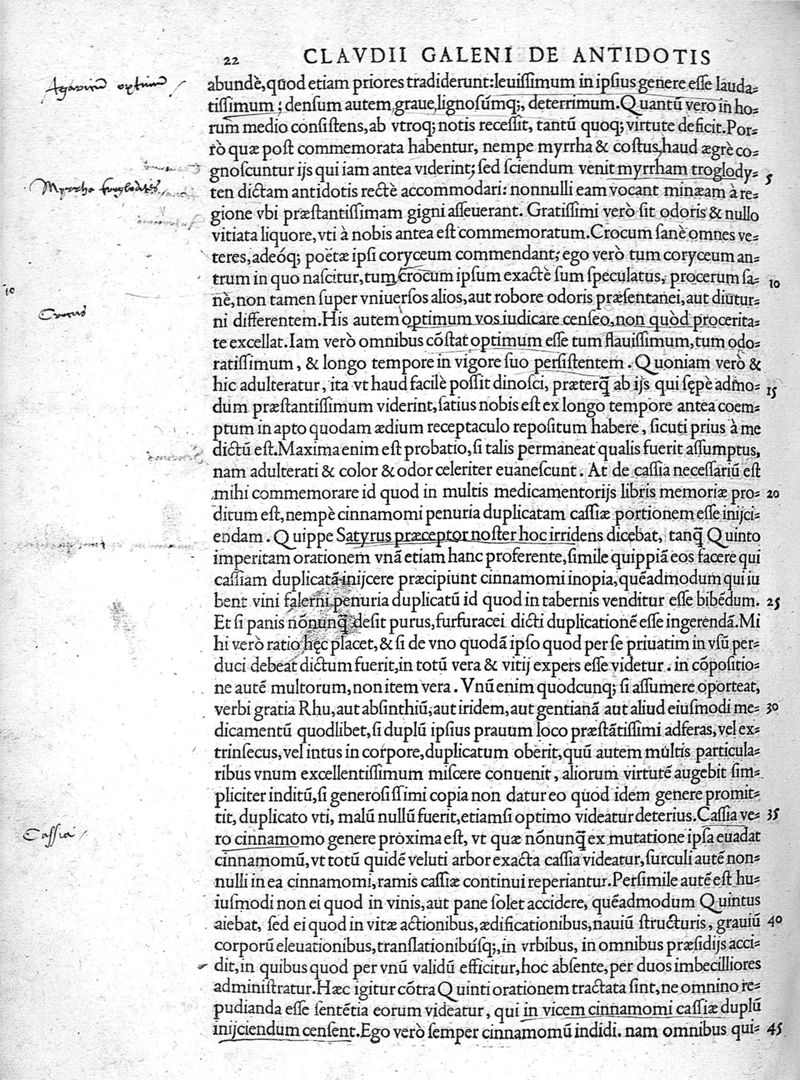 22 CLAVDII GALENI DE ANTIDOTIS
abundè,quod etiam priores tradiderunt:leuissimum in ipsius genere esse lauda=
tissimum ; densum autem,graue,lignosúmq;, deterrimum. Quantũ vero in ho=
rum medio consistens,ab vtroq; notis recessit, tantũ quoq; virtute deficit.Por=
rò quæ post commemorata habentur, nempe myrrha & costus,haud ægrè co=
gnoscuntur ijs qui iam antea viderint; sed sciendum venit myrrham troglody=
5
ten dictam antidotis rectè accommodari: nonnulli eam vocant minæam à re=
gione vbi præstantissimam gigni asseuerant. Gratissimi verò sit odoris & nullo
vitiata liquore,vti à nobis antea est commemoratum.Crocum sanè omnes ve=
teres,adeóq; poëtæ ipsi coryceum commendant; ego verò tum coryceum an=
trum in quo nascitur,tum crocum ipsum exactè sum speculatus, procerum sa=
10
nè,non tamen super vniuersos alios,aut robore odoris præsentanei,aut diutur=
ni differentem.His autem optimum vos iudicare censeo,non quòd procerita=
te excellat.Iam verò omnibus cõstat optimum esse tum flauissimum,tum odo=
ratissimum, & longo tempore in vigore suo persistentem. Quoniam verò &
hic adulteratur, ita vt haud facilè possit dinosci, præterq̃ ab ijs qui sępè admo=
15
dum præstantissimum viderint,satius nobis est ex longo tempore antea coem=
ptum in apto quodam ædium receptaculo repositum habere, sicuti prius à me
dictũ est.Maxima enim est probatio,si talis permaneat qualis fuerit assumptus,
nam adulterati & color & odor celeriter euanescunt. At de cassia necessariũ est
mihi commemorare id quod in multis medicamentorijs libris memoriæ pro=
20
ditum est,nempè cinnamomi penuria duplicatam cassiæ portionem esse inijci=
endam. Quippe Satyrus præceptor noster hoc irridens dicebat, tanq̃ Quinto
imperitam orationem vnã etiam hanc proferente,simile quippiã eos facere qui
cassiam duplicatã inijcere præcipiunt cinnamomi inopia,quẽadmodum qui iu
bent vini falerni penuria duplicatũ id quod in tabernis venditur esse bibẽdum.
25
Et si panis nõnunq̃ desit purus,furfuracei dicti duplicationẽ esse ingerendã.Mi
hi verò ratio hęc placet,& si de vno quodã ipso quod per se priuatim in vsũ per=
duci debeat dictum fuerit,in totũ vera & vitij expers esse videtur. in cõpositio=
ne autẽ multorum,non item vera. Vnũ enim quodcunq; si assumere oporteat,
verbi gratia Rhu,aut absinthiũ,aut iridem,aut gentianã aut aliud eiusmodi me=
30
dicamentũ quodlibet,si duplũ ipsius prauum loco præstãtissimi adferas,vel ex=
trinsecus,vel intus in corpore,duplicatum oberit,quũ autem multis particula=
ribus vnum excellentissimum miscere conuenit, aliorum virtutẽ augebit sim=
pliciter inditũ,si generosissimi copia non datur eo quòd idem genere promit=
tit, duplicato vti, malũ nullũ fuerit,etiamsi optimo videatur deterius.Cassia ve=
35
ro cinnamomo genere proxima est, vt quæ nõnunq̃ ex mutatione ipsa euadat
cinnamomũ,vt totũ quidẽ veluti arbor exacta cassia videatur,surculi autẽ non=
nulli in ea cinnamomi,ramis cassiæ continui reperiantur.Persimile autẽ est hu=
iusmodi non ei quod in vinis,aut pane solet accidere, quẽadmodum Quintus
aiebat, sed ei quod in vitæ actionibus,ædificationibus,nauiũ structuris, grauiũ
40
corporũ eleuationibus,translationibúsq;,in vrbibus, in omnibus præsidijs acci=
dit,in quibus quod per vnũ validũ efficitur,hoc absente,per duos imbecilliores
administratur.Hæc igitur cõtra Quinti orationem tractata sint,ne omnino re=
pudianda esse sentẽtia eorum videatur, qui in vicem cinnamomi cassiæ duplũ
inijciendum censent.Ego verò semper cinnamomũ indidi. nam omnibus qui=
45
Myrrha troglodites
10
Crocus
Cassia